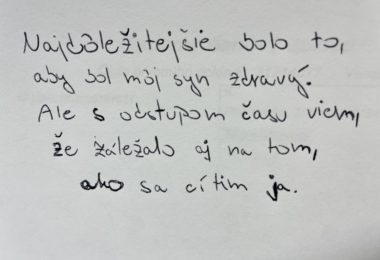 Najdôležitejšie bolo to,
aby bol môj syn zdravý.
Ale s odstupom času viem,
že záležalo aj na tom,
ako sa cítim ja.